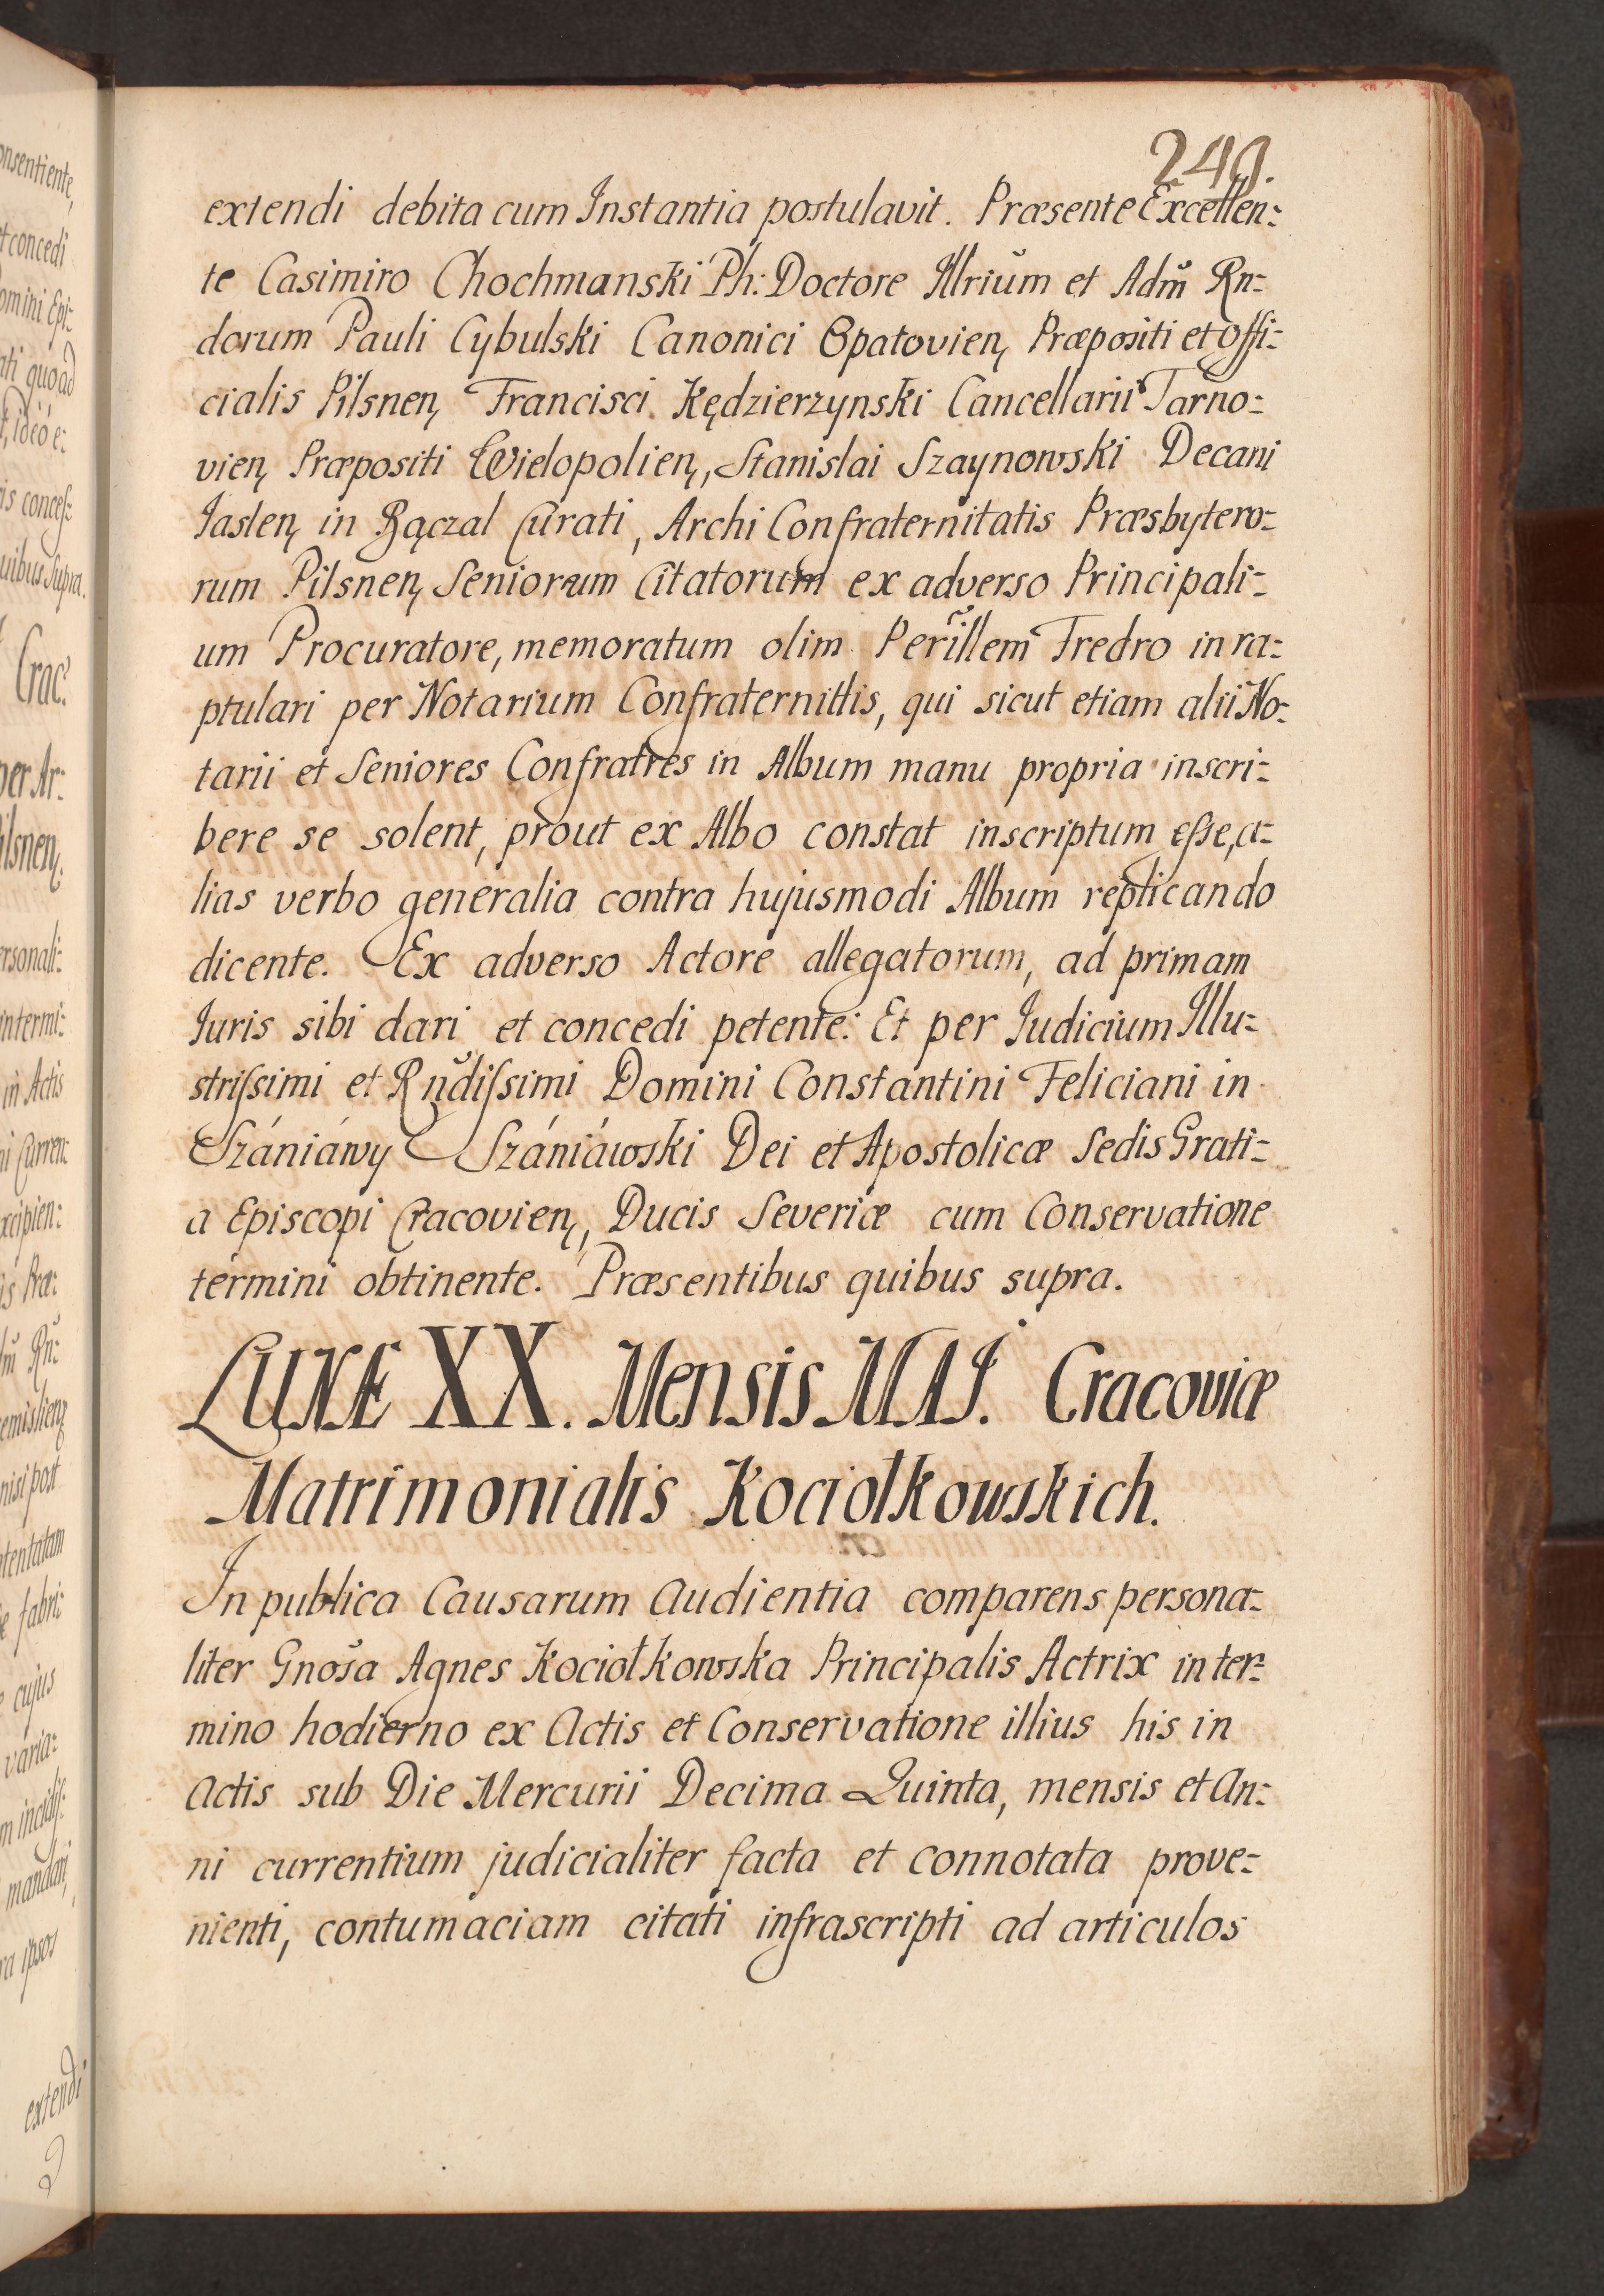 249.
extendi debita cum Instantia postulavit. Præsente Excellen:
te Casimiro Chochmanski Ph: Doctore Illriūm et Adm̃ Rn:
dorum Pauli Cybulski Canonici Opatovien, Præpositi et Offi:
cialis Pilsnen, Francisci Kędzierzynski Cancellarii Tarno:
vien, Præpositi Wielopolien, Stanislai Szaynowski Decani
Jaslen, in Bączal Curati, Archi Confraternitatis Præsbytero:
rum Pilsnen, Seniorum Citatorum ex adverso Principali:
um Procuratore, memoratum olim Perillem̃ Fredro in ra:
ptulari per Notarium Confraternittis, qui sicut etiam alii No:
tarii et Seniores Confratres in Album manu propria inscri:
bere se solent, prout ex Albo constat inscriptum eſse, a:
lias verbo generalia contra hujusmodi Album replicando
dicente. Ex adverso Actore allegatorum, ad primam
Juris sibi dari et concedi petente: Et per Judicium Illu:
striſsimi et Rñdiſsimi Domini Constantini Feliciani in
Szániáwy Szániáwski Dei et Apostolicæ Sedis Grati:
a Episcopi Cracovien, Ducis Severiæ cum Conservatione
termini obtinente. Præsentibus quibus supra.
LUNÆ XX. Mensis MAJ. Cracoviæ
Matrimonialis Kociołkowskich.
In publica Causarum Audientia comparens persona:
liter Gnõsa Agnes Kociołkowska Principalis Actrix in ter:
mino hodierno ex Actis et Conservatione illius his in
Actis sub Die Mercurii Decima Quinta, mensis et An:
ni currentium judicialiter facta et connotata prove:
nienti, contumaciam citati infrascripti ad articulos